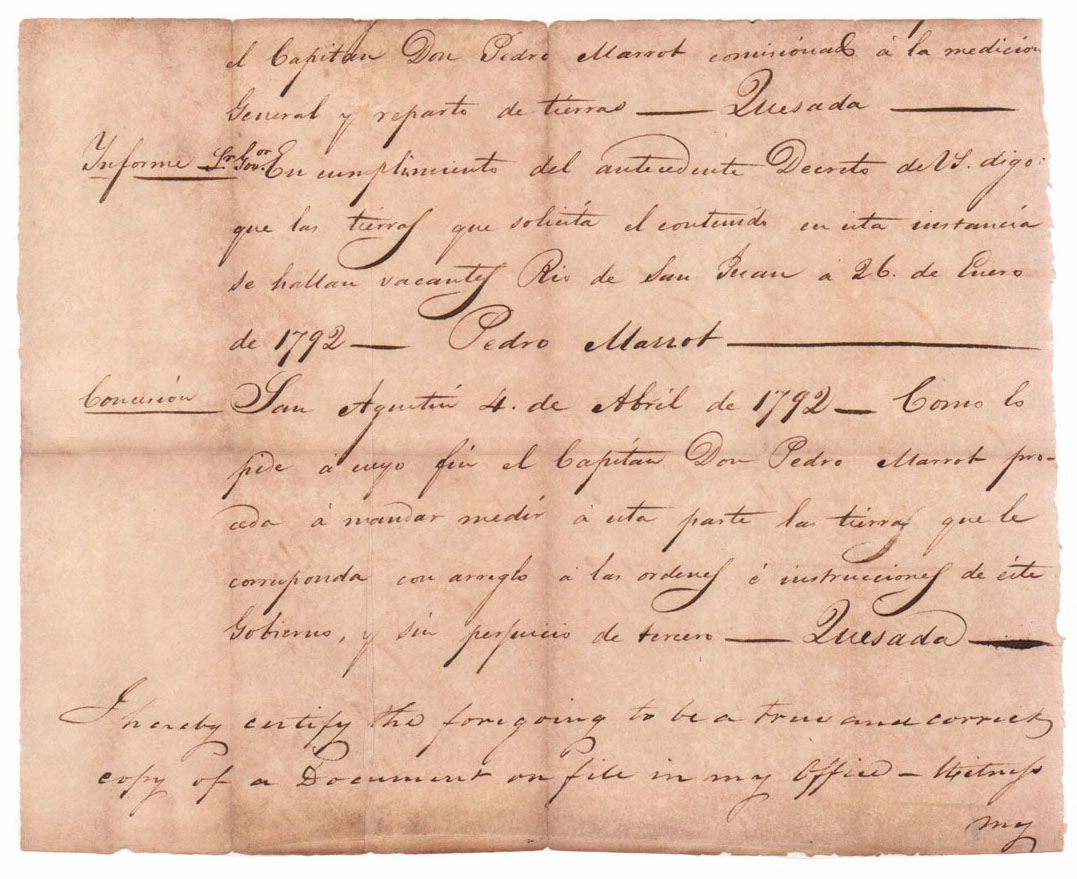 el Capitan Don Pedro Marrot comisionado á la medicion
General y reparto de tierras — Quesada —
Informe Sr. Govor. En cumplimiento del antecedente Decreto de VS. digo
que las tierras que solicita el contenido en esta instancia
se hallan vacantes Rio de San Juan a 26. de Enero
de 1792 — Pedro Marrot —
Concesión San Agustin 4. de Abril de 1792 — Como lo
pide á cuyo fin el Capitán Don Pedro Marrot pro-
ceda á mandar medir á esta parte las tierras que le
corresponda con arreglo á las ordenes é instrucciones de éste
Gobierno, y sin perjuicio de tercero — Quesada —
I hereby certify the foregoing to be a true and correct
copy of a Document on file in my Office — Witness
my